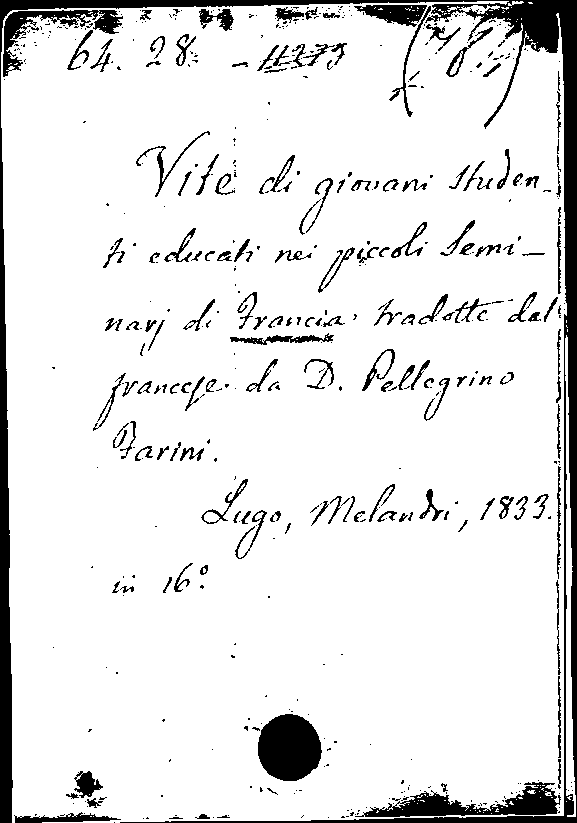 64. 28.
Vite di giovani studen-
ti educati nei piccoli Semi-
narj di Francia tradotte dal
francese da D. Pellegrino
Farini.
Lugo, Melandri, 1833.
in 16°.